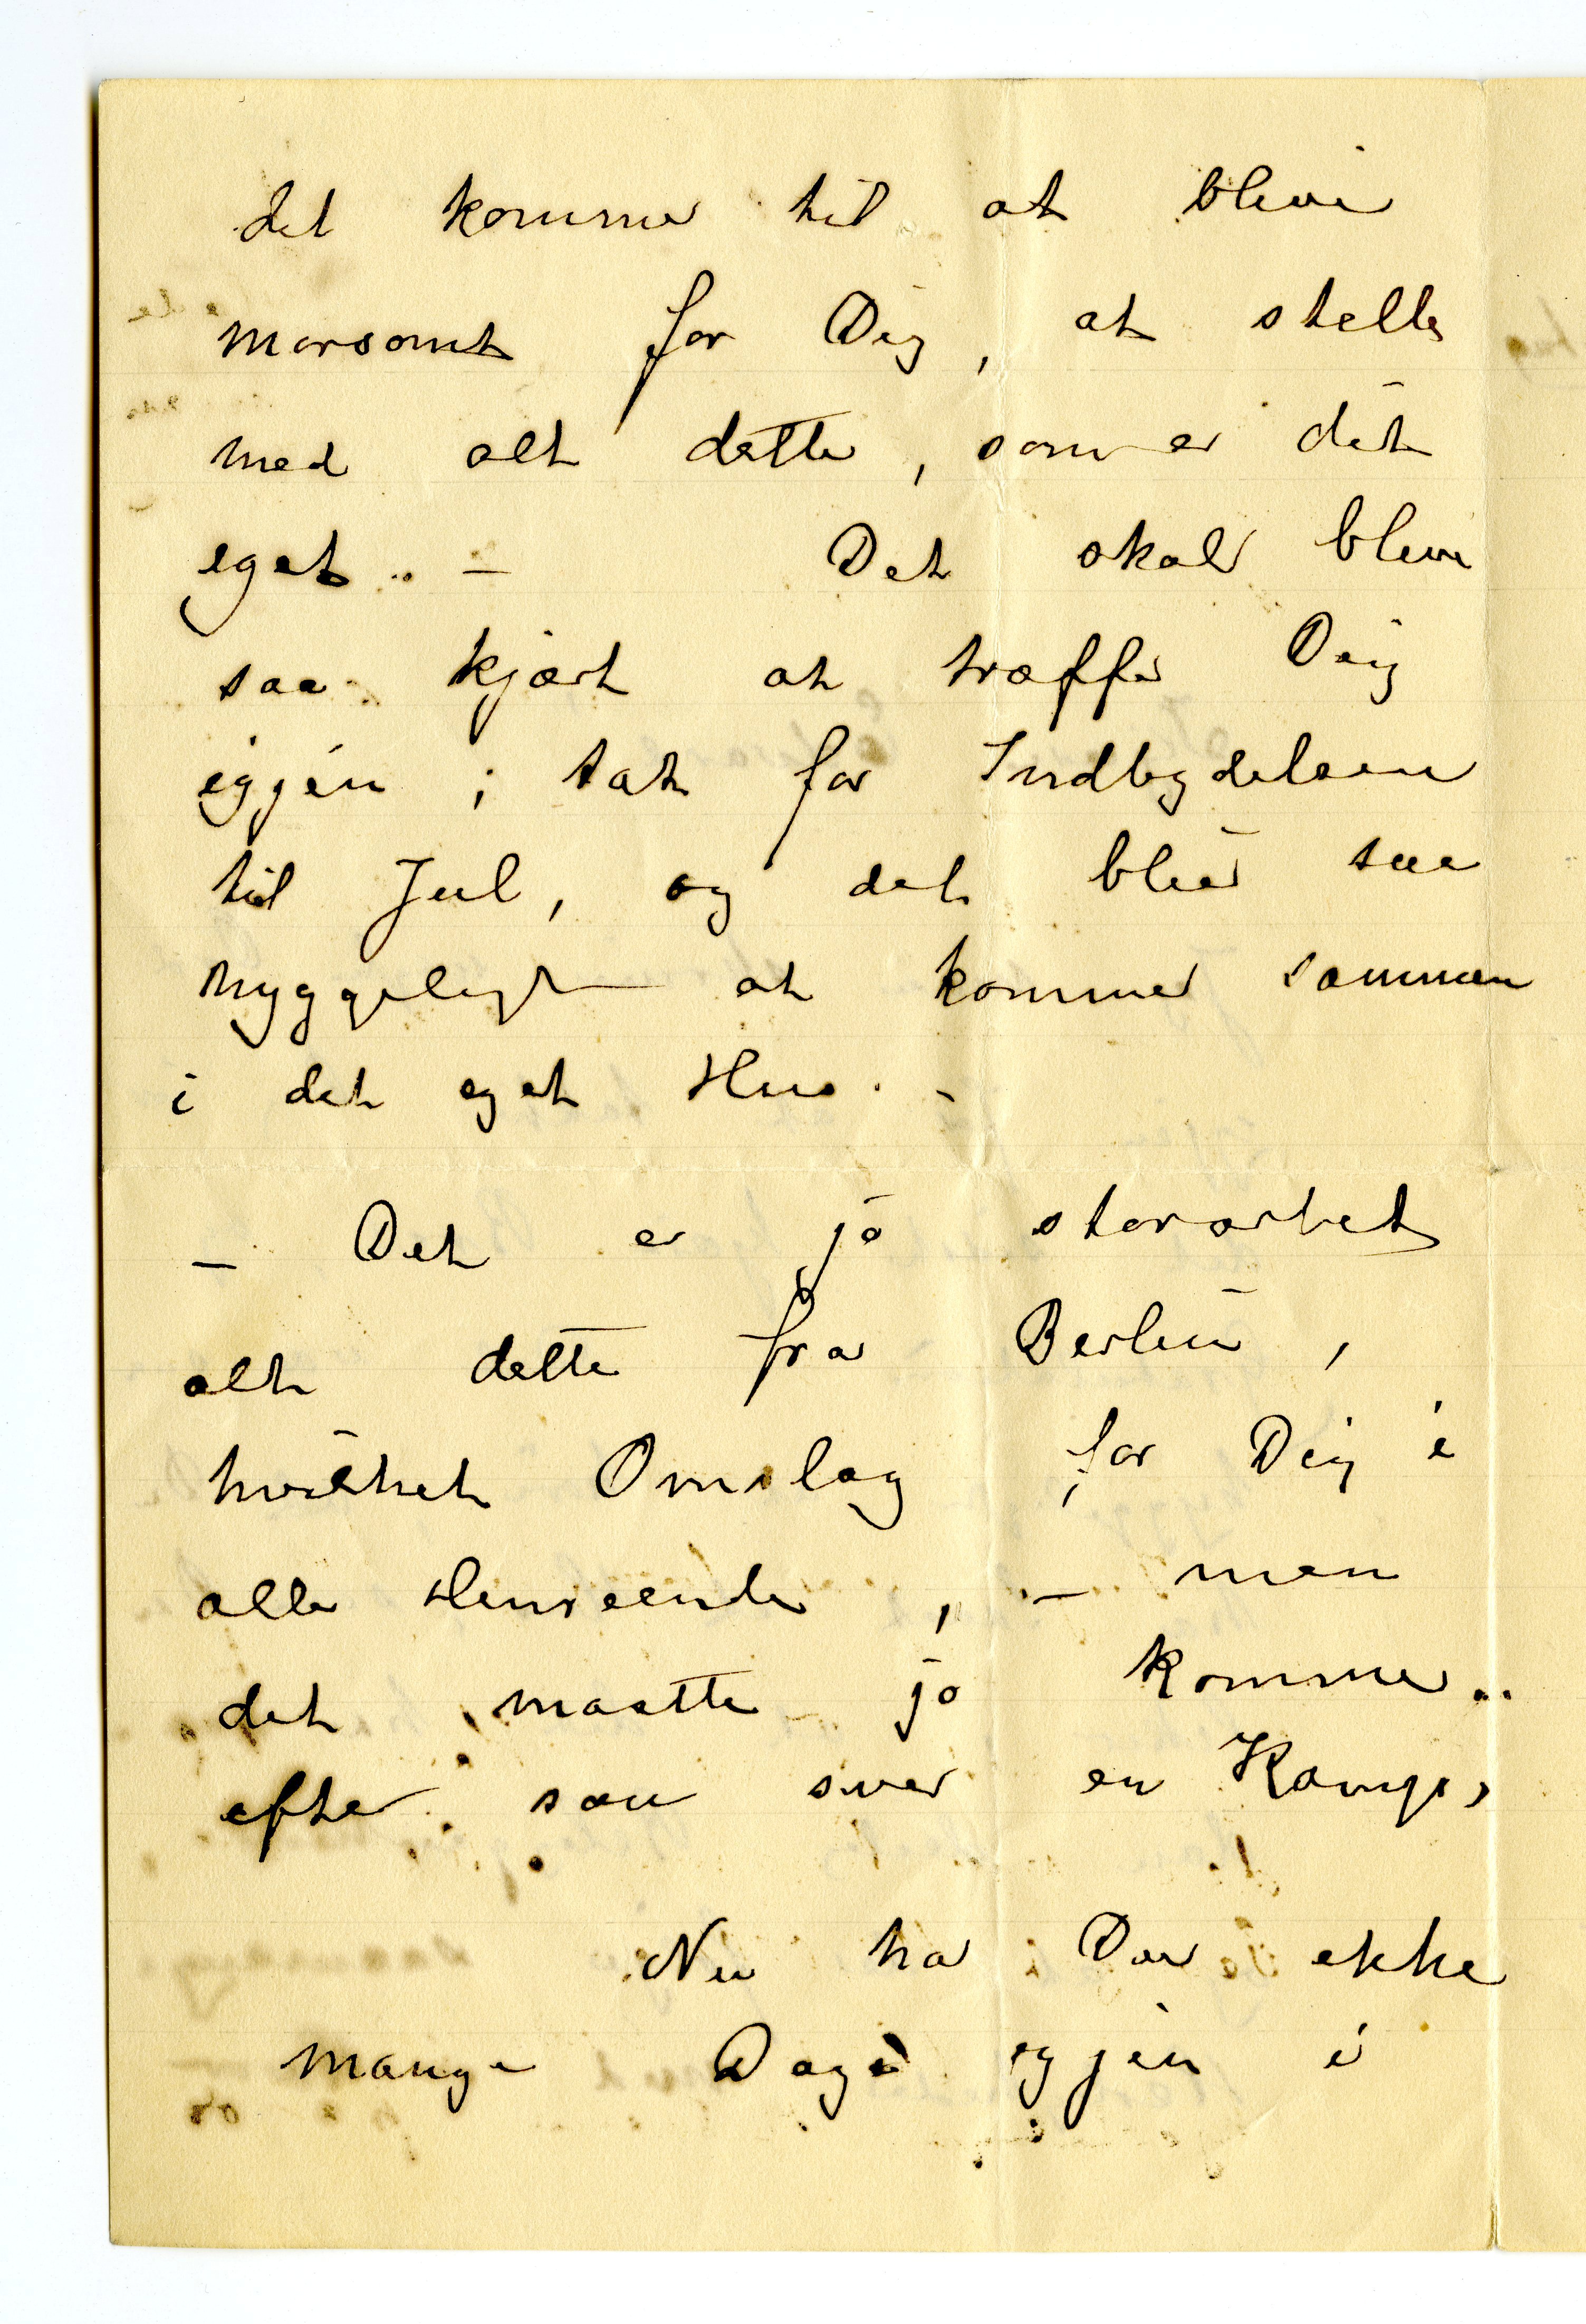 det kommer til at blive
morsomt for Dig, at stelle
med alt dette, som er dit
eget.. –   Det skal blive
saa kjært at træffe Dig
igjen; tak for Indbydelsen
til Jul, og det blir saa
hyggeligt at komme sammen
i det eget Hus. –
– Det er jo storartet
alt dette fra Berlin,
hvilket Omslag for Dig i
alle Henseender, – men
det maatte jo komme..
efter saa svær en Kamp,
Nu har Du ikke
mange Dage igjen i